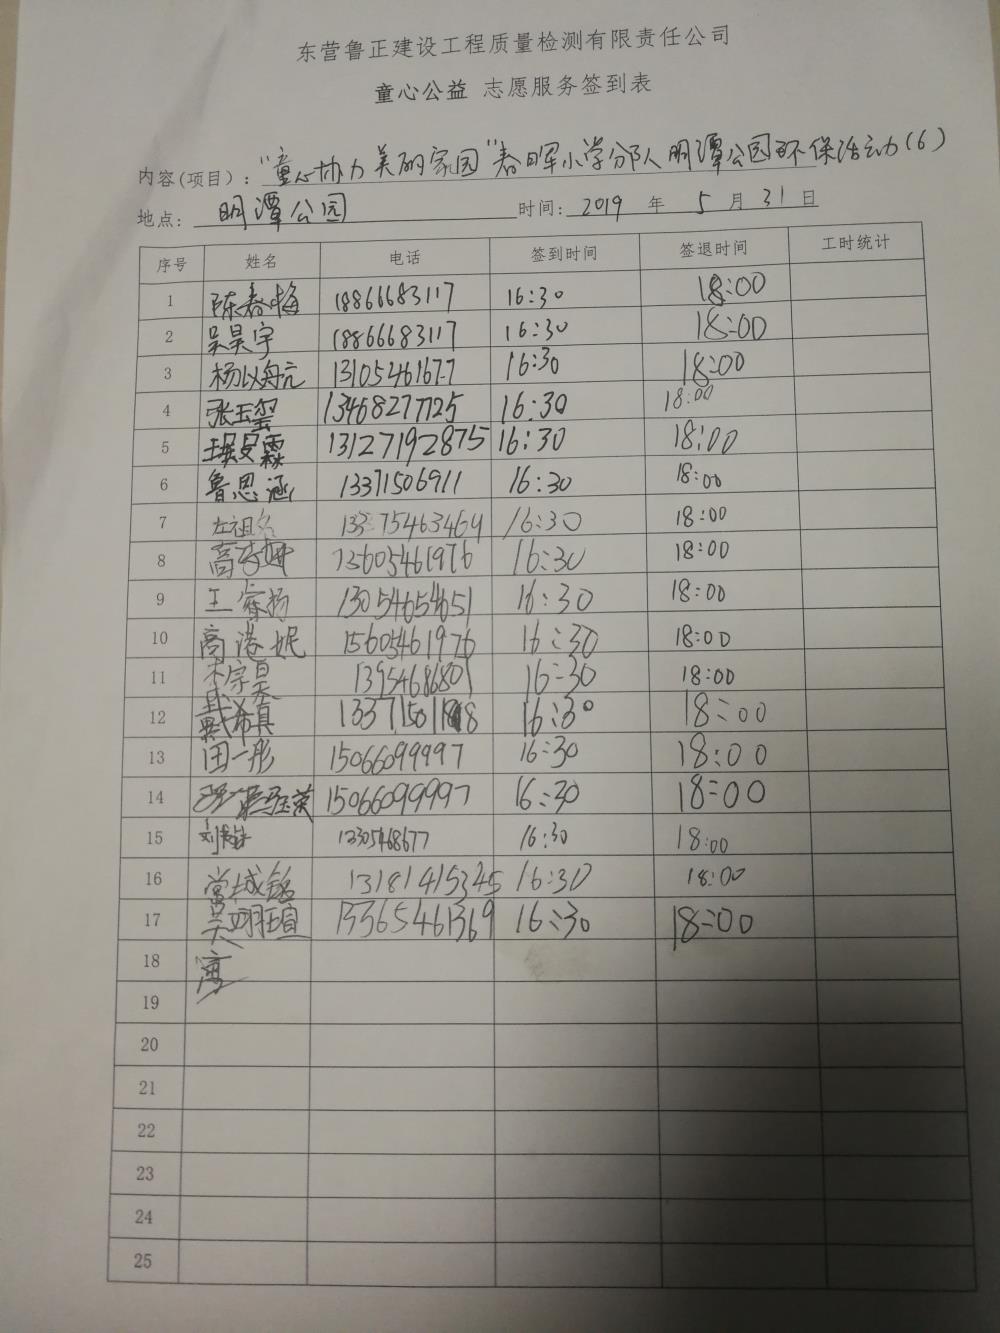 东营鲁正建设工程质量检测有限责任公司
童心公益 志愿服务签到表
内容(项目)："童心协力 美丽家园"春晖小学分队明潭公园环保活动(6)
地点：明潭公园 时间：2019 年 5 月 31 日
序号 姓名 电话 签到时间 签退时间 工时统计
1 陈春梅 18866683117 16:30 18:00
2 吴昊宇 18866683117 16:30 18:00
3 杨以舟亢 13105461677 16:30 18:00
4 张玉玺 13468277125 16:30 18:00
5 13127192875 16:30 18:00
6 鲁思涵 13371506911 16:30 18:00
7 左祖名 16:30 18:00
8 13605461976 16:30 18:00
9 王睿扬 13054654651 16:30 18:00
10 高港妮 15605461976 16:30 18:00
11 宗昊 13954686801 16:30 18:00
12 戴希真 16:30 18:00
13 田一彤 15066099997 16:30 18:00
14 15066099997 16:30 18:00
15 16:30 18:00
16 常城铭 13181415345 16:30 18:00
17 吴翊瑄 13365461369 16:30 18:00
18
19
20
21
22
23
24
25